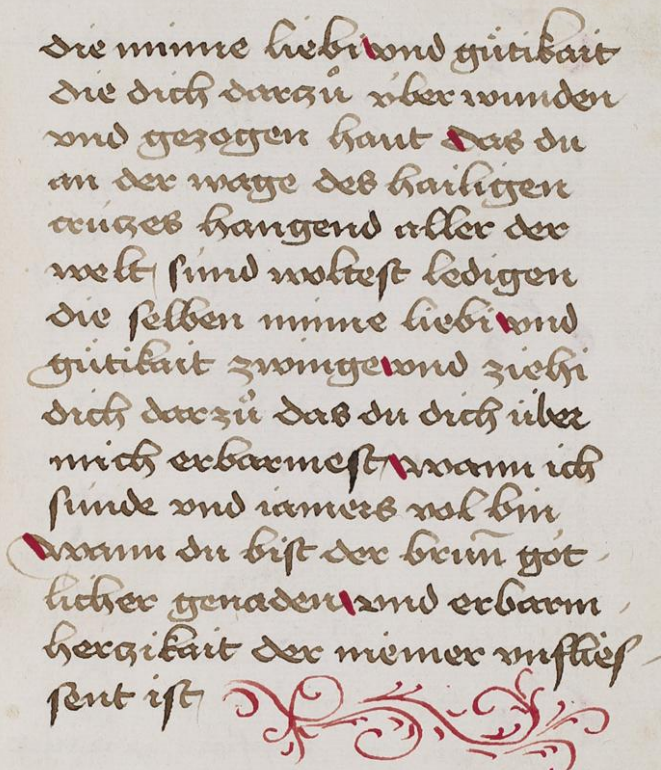 die minne liebi vnd gůtikait
die dich darzů v́ber wunden
vnd gezogen haut Das du
an der wage des hailigen
crúczes hangend aller der
welt súnd woltest ledigen
die selben minne liebi vnd
gútikait zwinge vnd ziehi
dich darzů das du dich úber
mich erbarmest wann ich
súnde vnd iamers vol bin
Wann du bist der brun̄ göt
licher genaden vnd erbarm
herczikait der niemer vnflies
sent ist